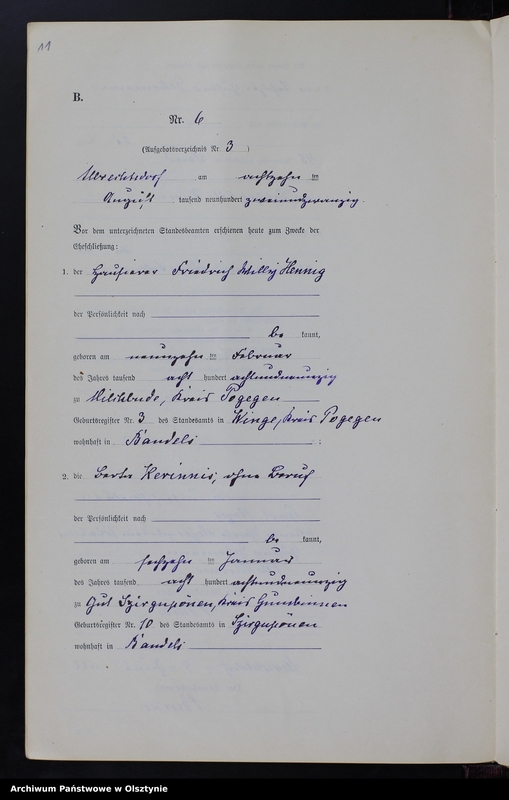 11
B.
Nr. 6
(Aufgebotsverzeichnis Nr. 3 )
Albrechtsdorf am achtzehn ten
August tausend neunhundert zweiundzwanzig.
Vor dem unterzeichneten Standesbeamten erschienen heute zum Zwecke der
Eheschließung:
1. der Hausierer Friedrich Willy Hennig
der Persönlichkeit nach
be kannt,
geboren am neunzehn ten Februar
des Jahres tausend acht hundert achtundneunzig
zu Kreis Pogegen
Geburtsregister Nr. 3 des Standesamts in Winge, Kreis Pogegen
wohnhaft in Bandels ;
2. die Berta Kerinnis, ohne Beruf
der Persönlichkeit nach
be kannt,
geboren am sechzehn ten Januar
des Jahres tausend acht hundert achtundneunzig
zu Gut Szirgupönen, Kreis Gumbinnen
Geburtsregister Nr. 10 des Standesamts in Szirgupönen
wohnhaft in Bandels
Archiwum Państwowe w Olsztynie